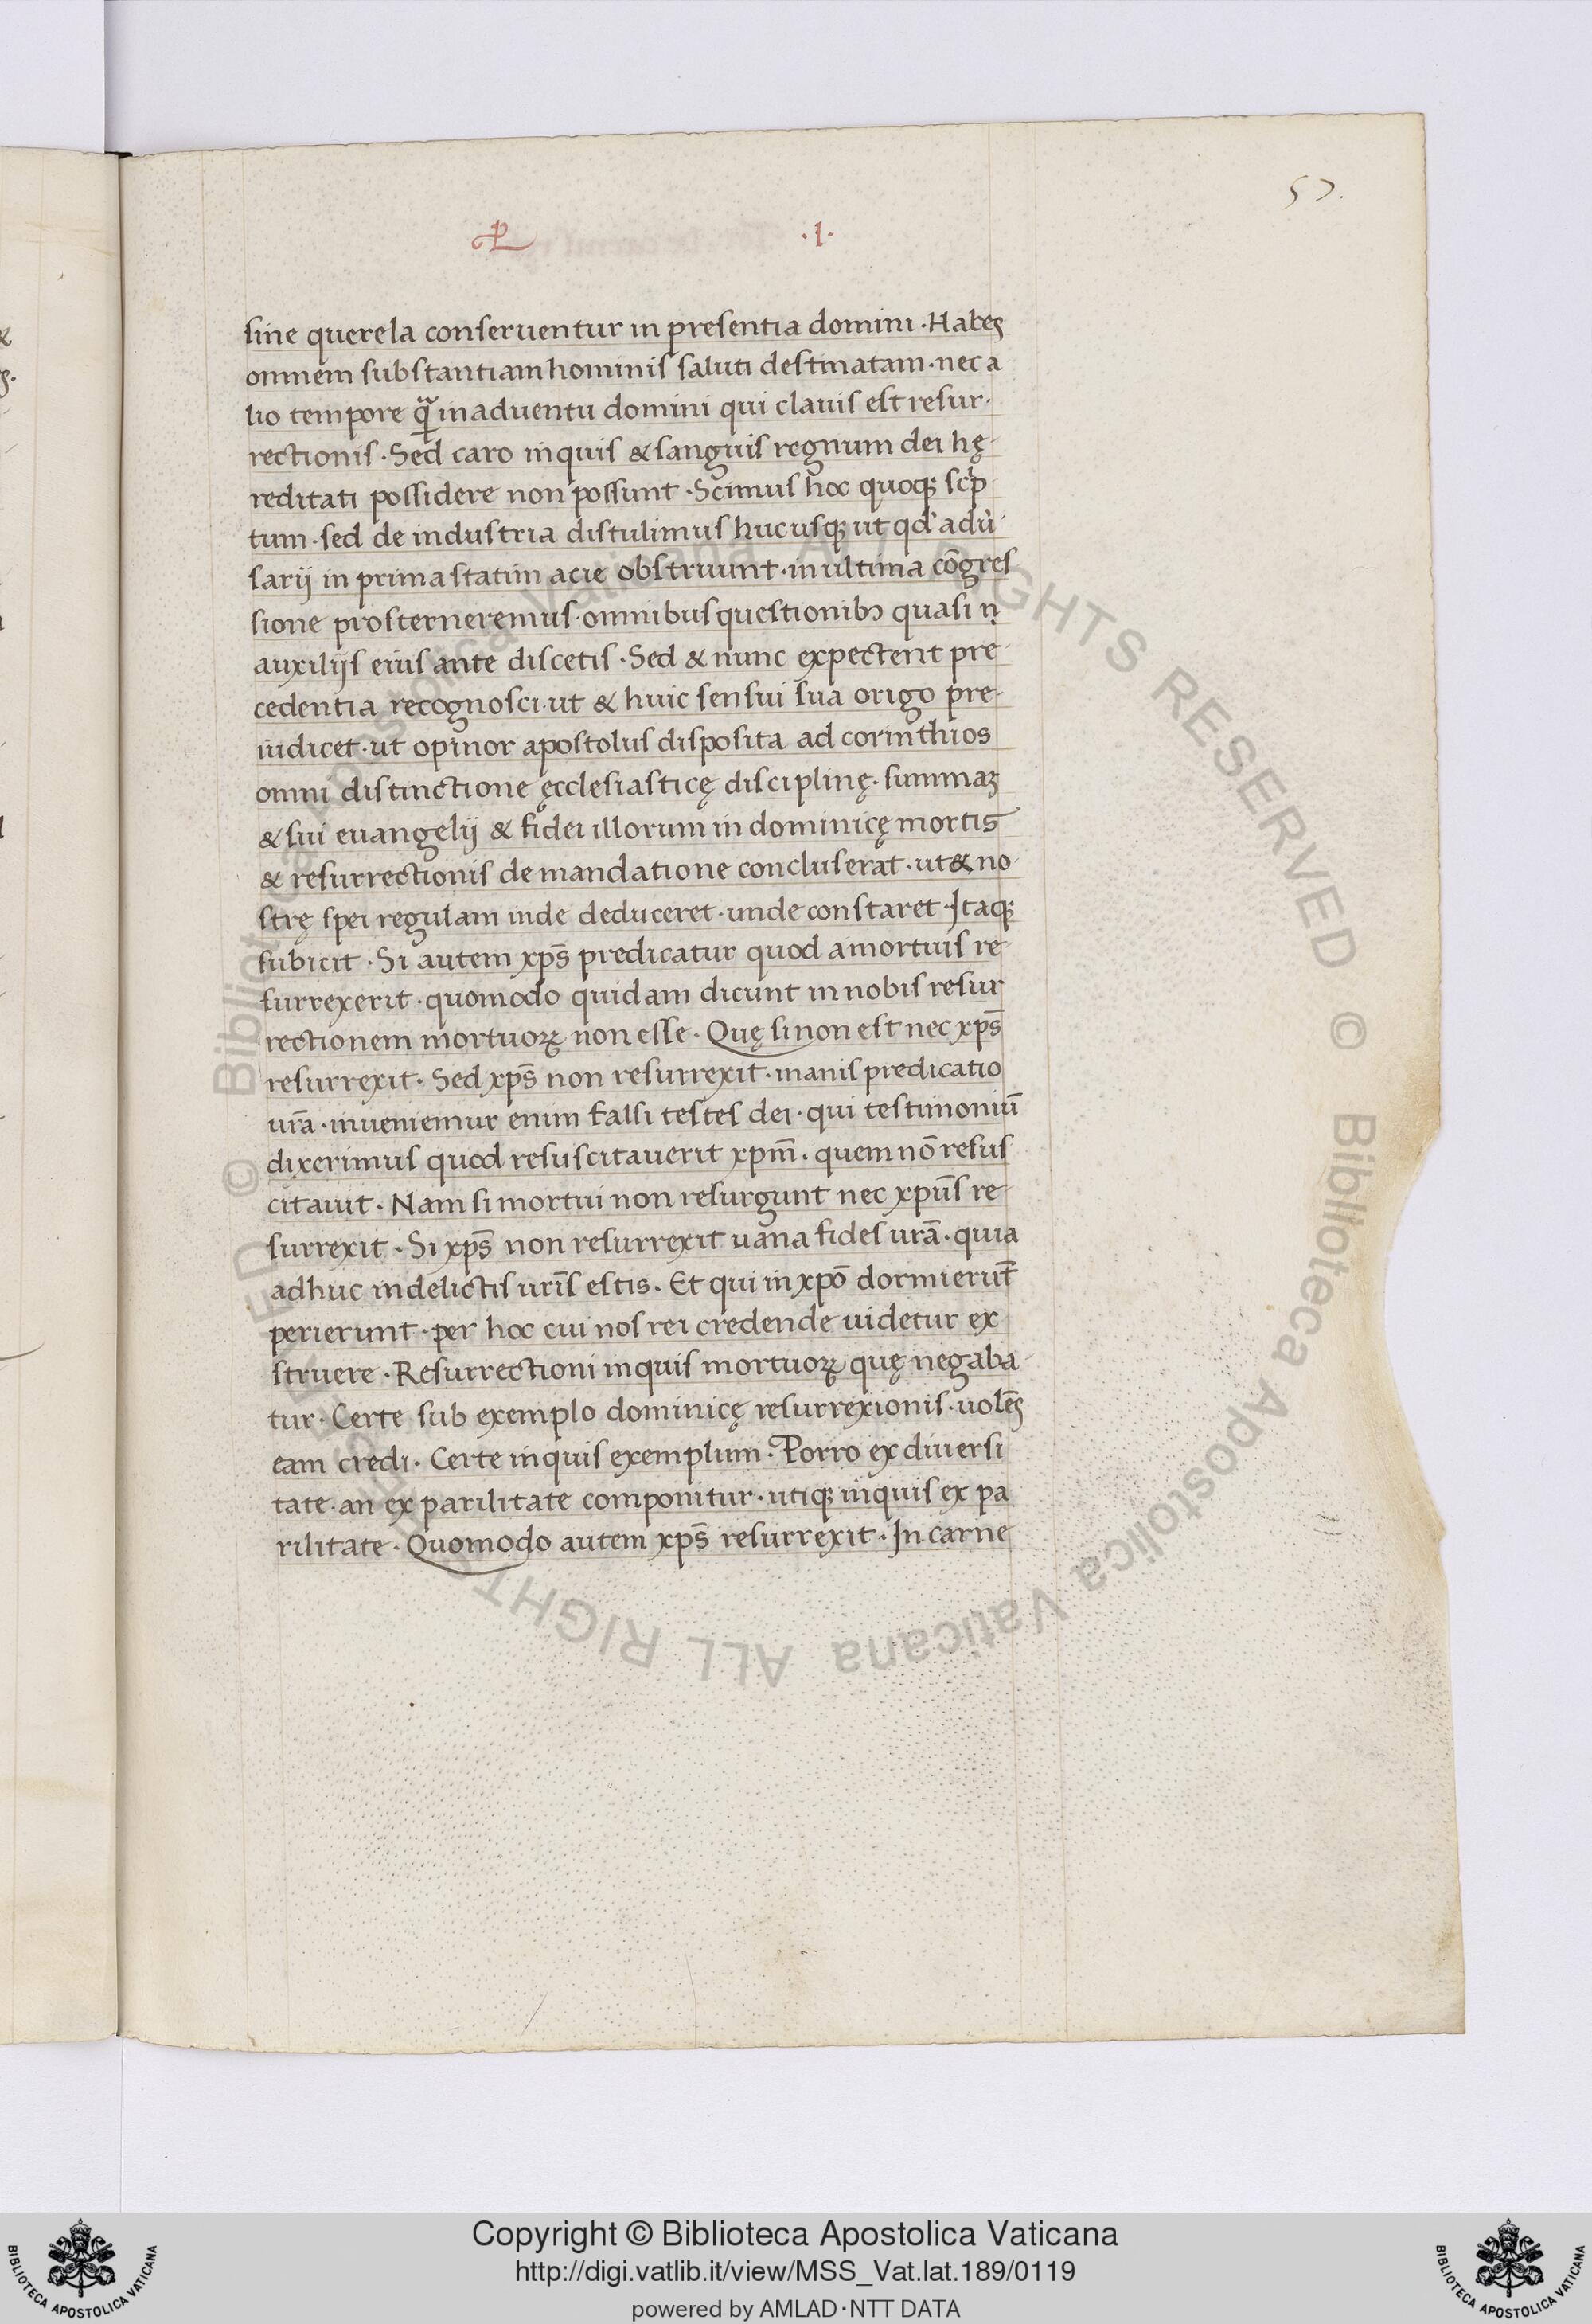 57.
PL .I.
sine querela conseruentur in presentia domini · Habes
omnem substantiam hominis saluti destinatam · nec a
lio tempore q̃ in aduentu domini qui clauis est resur-
rectionis · Sed caro inquis & sanguis regnum dei hę-
reditati possidere non possunt · Scimus hoc quoqꝫ scͥp
tum · sed de industria distulimus huc usqꝫ ut qd' adũ-
sarij in prima statim acie obstruunt · in ultima cõgres
sione prosterneremus · omnibus questionibꝫ quasi
auxilijs eius ante discetis · Sed & nunc expectent pre-
cedentia recognosci · ut & huic sensui sua origo pre-
iudicet · ut opinor apostolus disposita ad corinthios
omni distinctione ęcclesiasticę disciplinę · summaꝫ
& sui euangelij & fidei illorum in dominicę mortis
& resurrectionis demandatione concluserat · ut & no-
strę spei regulam inde deduceret · unde constaret · Itaqꝫ
subicit · Si autem xp̃s predicatur quod a mortuis re-
surrexerit · quomodo quidam dicunt in nobis resur
rectionem mortuoꝝ non esse · Quę si non est nec xp̃s
resurrexit · Sed xp̃s non resurrexit · inanis predicatio
ur̃a · inueniemur enim falsi testes dei · qui testimoniũ
dixerimus quod resuscitauerit xpm̃ · quem nõ resus
citauit · Nam si mortui non resurgunt nec xpũs re-
surrexit · Si xp̃s non resurrexit uana fides ur̃a · quia
adhuc in delictis ur̃is estis · Et qui in xpõ dormierũt
perierunt · per hoc cui nos rei credende uidetur ex
struere · Resurrectioni inquis mortuoꝝ quę negaba-
tur · Certe sub exemplo dominicę resurrexionis · uolẽs
eam credi · Certe inquis exemplum · Porro ex diuersi
tate · an ex parilitate componitur · utiqꝫ inquis ex pa
rilitate · Quomodo autem xp̃s resurrexit · In carne
© Biblioteca Apostolica Vaticana ALL RIGHTS RESERVED © Biblioteca Apostolica Vaticana ALL RIGHTS RESERVED
Copyright © Biblioteca Apostolica Vaticana
http://digi.vatlib.it/view/MSS_Vat.lat.189/0119
powered by AMLAD·NTT DATA
BIBLIOTECA APOSTOLICA VATICANA
BIBLIOTECA APOSTOLICA VATICANA